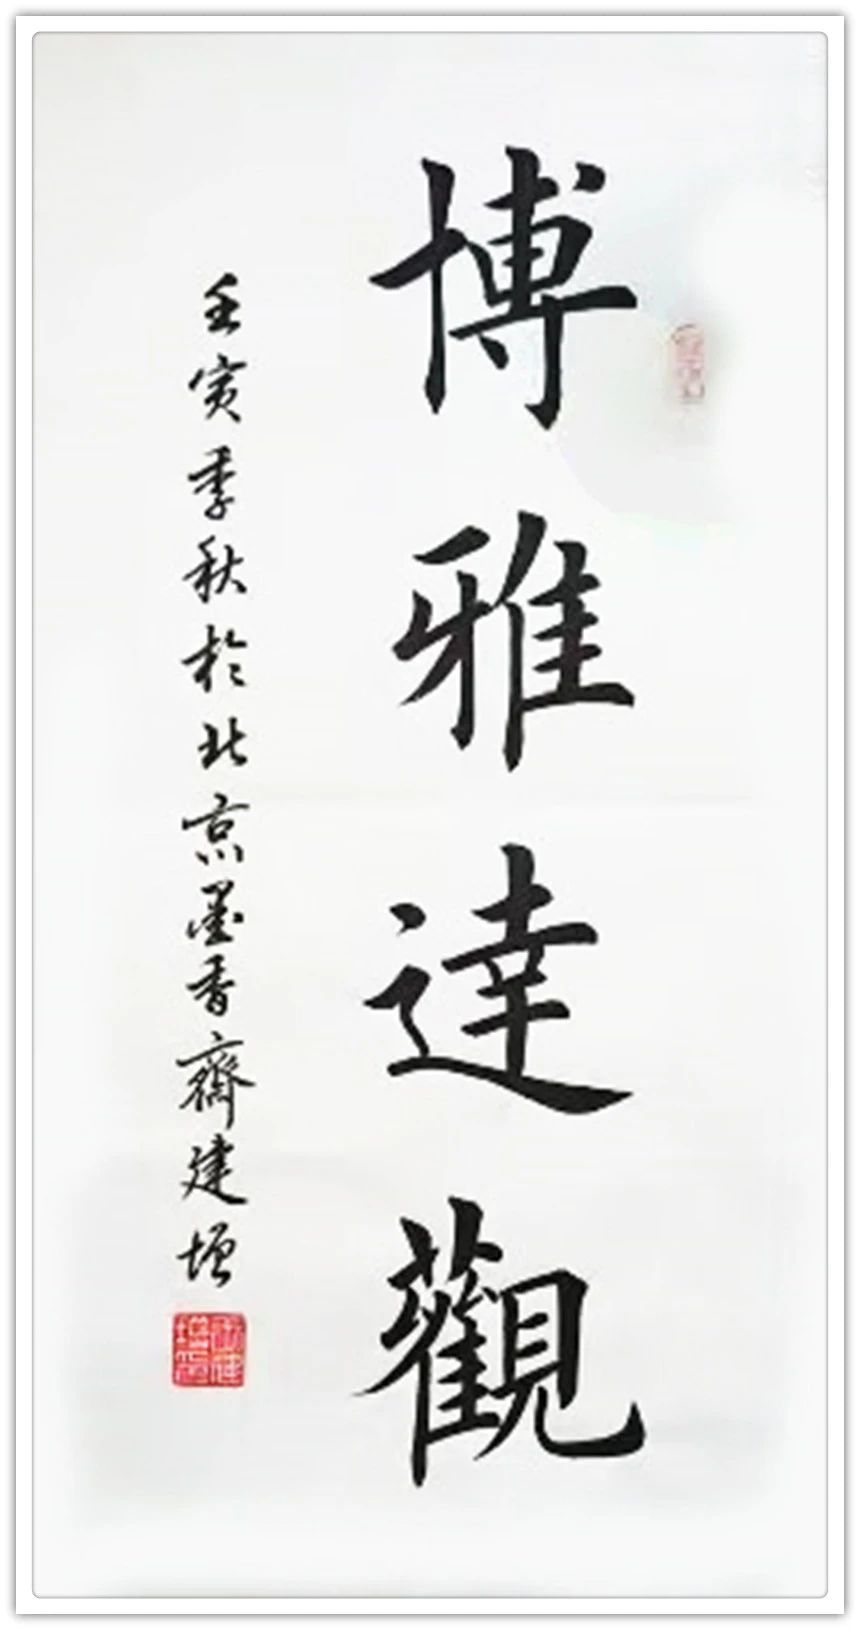 博雅達觀
壬寅季秋於北京墨香齋建增